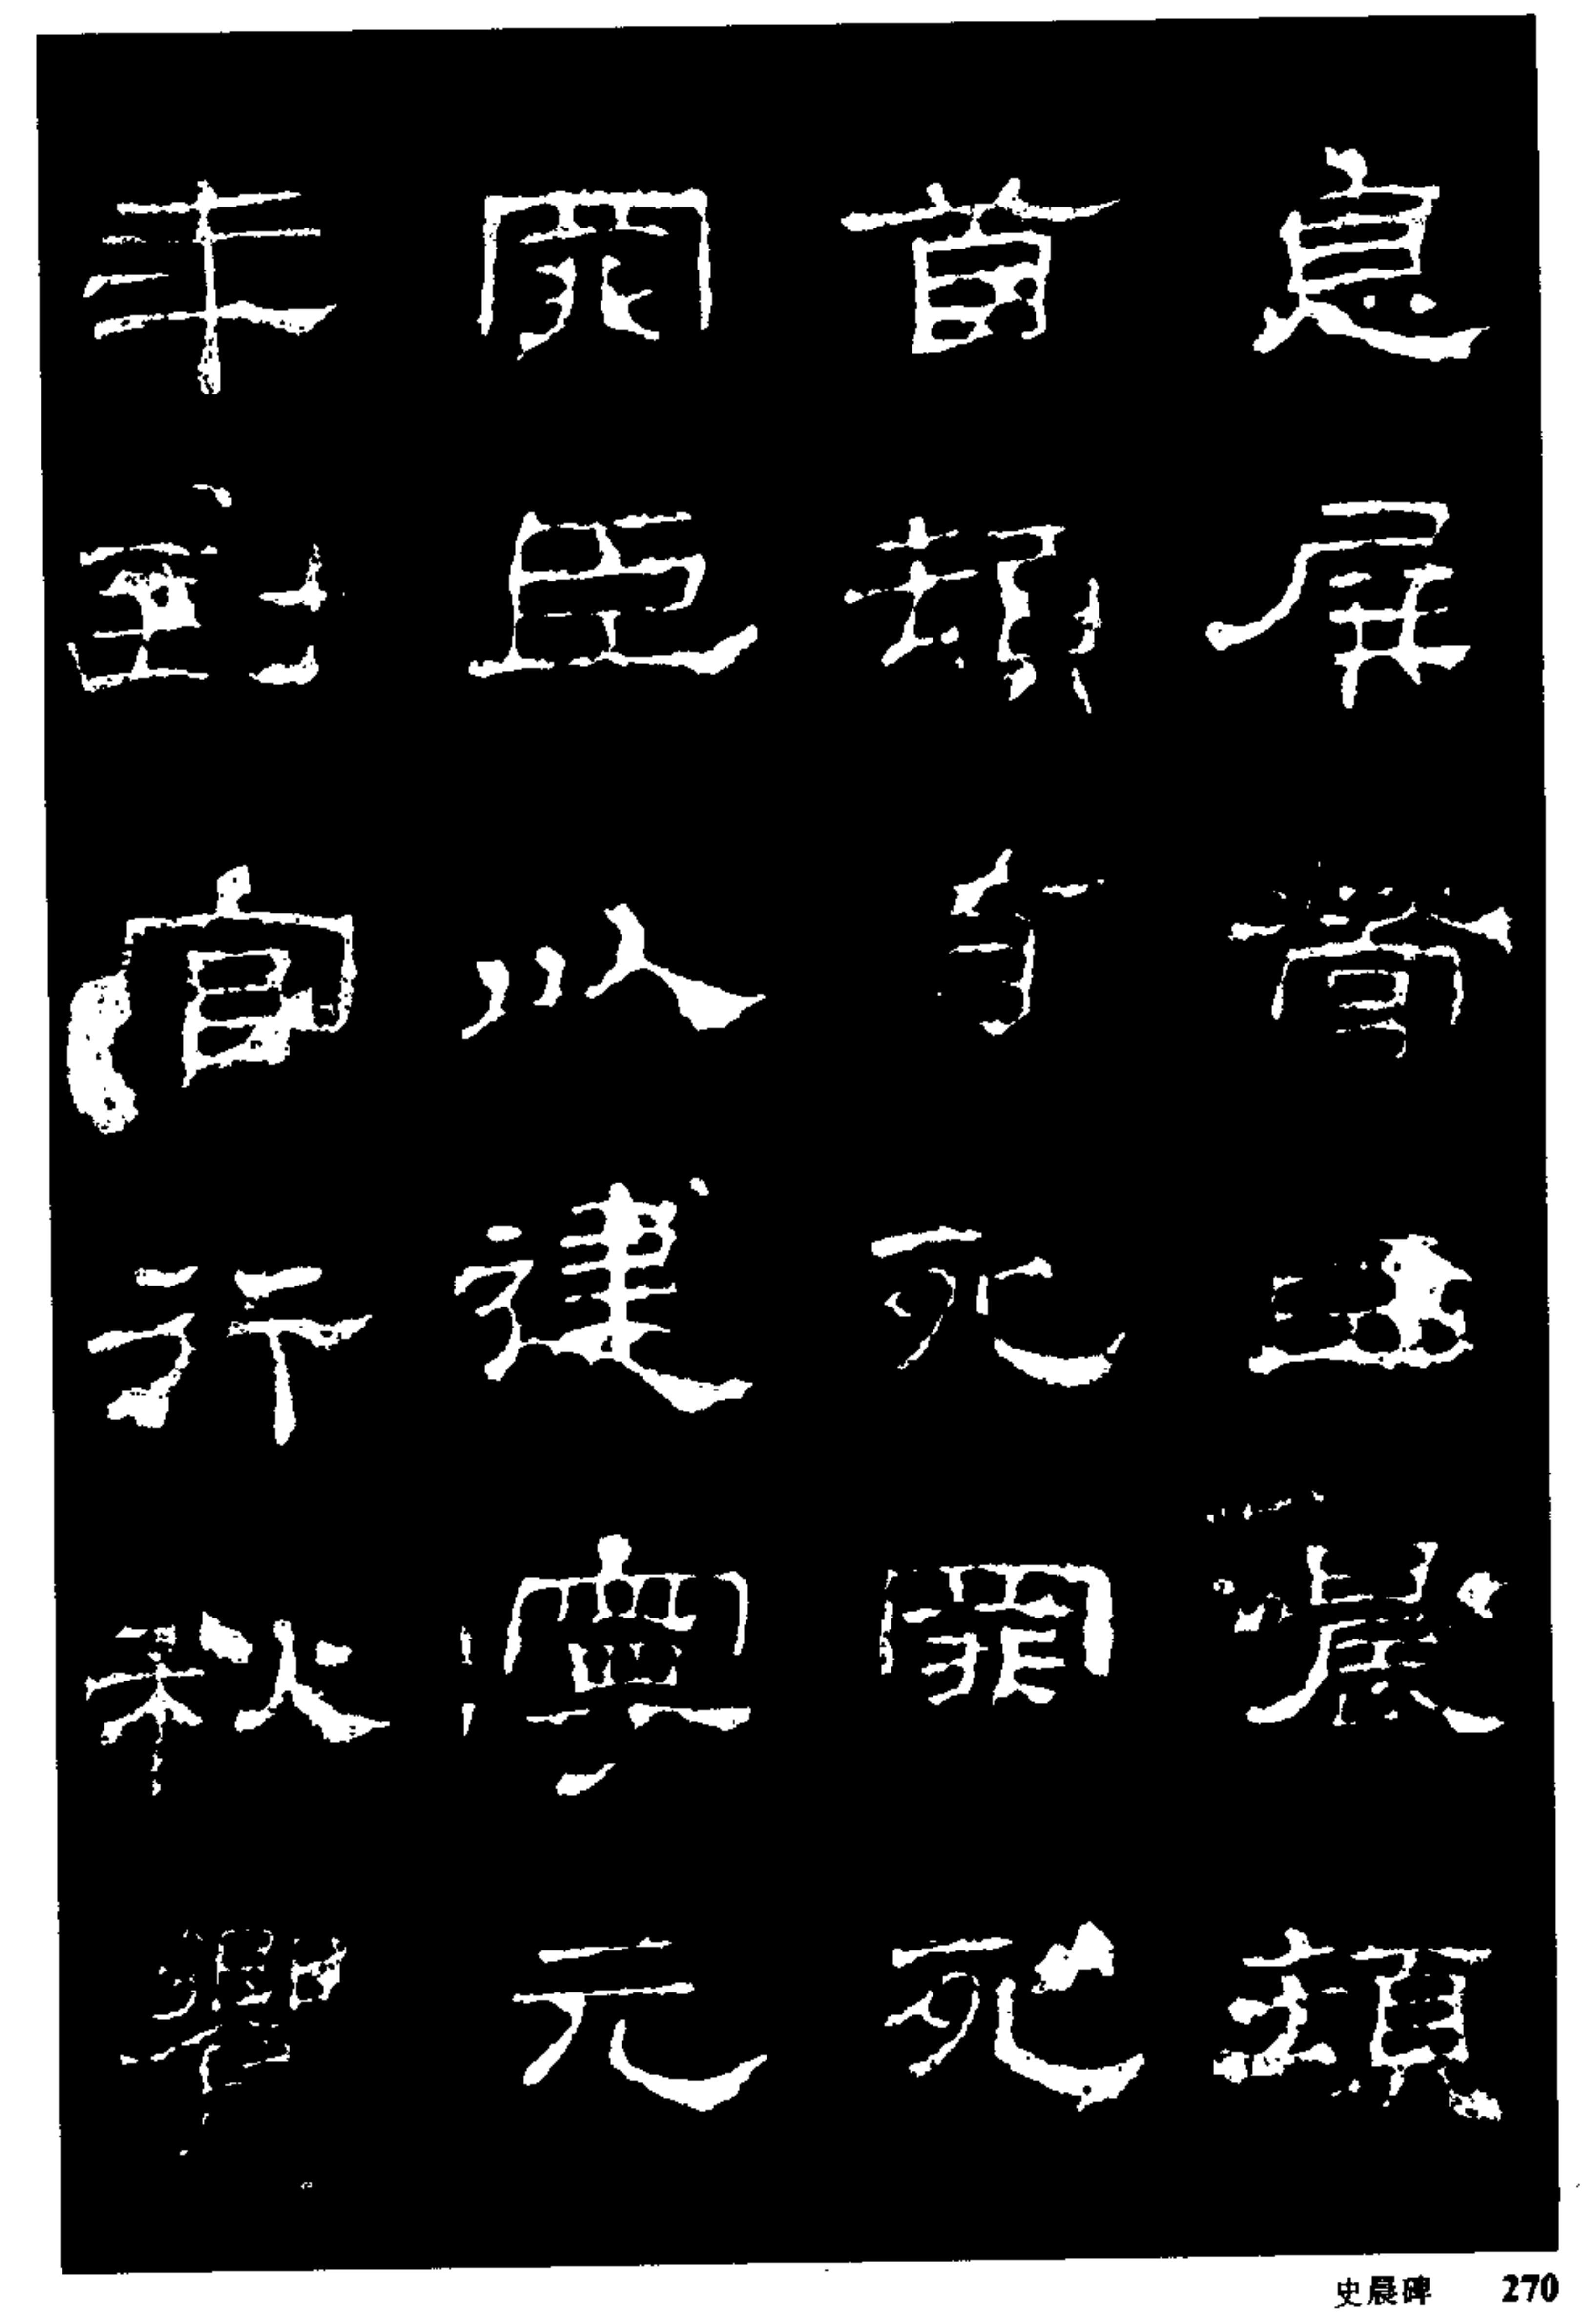 息屏營臣晨頓
首頓首死罪死
罪臣以建寧元
年到官行秋饗
史晨碑 270